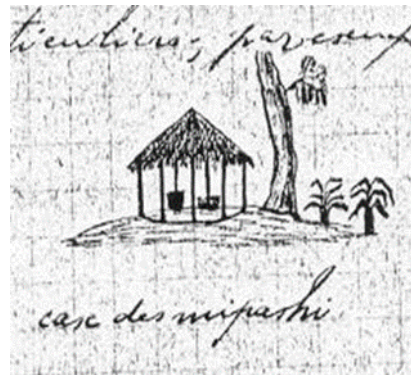 ticuliers, par exemp
case des mipashi